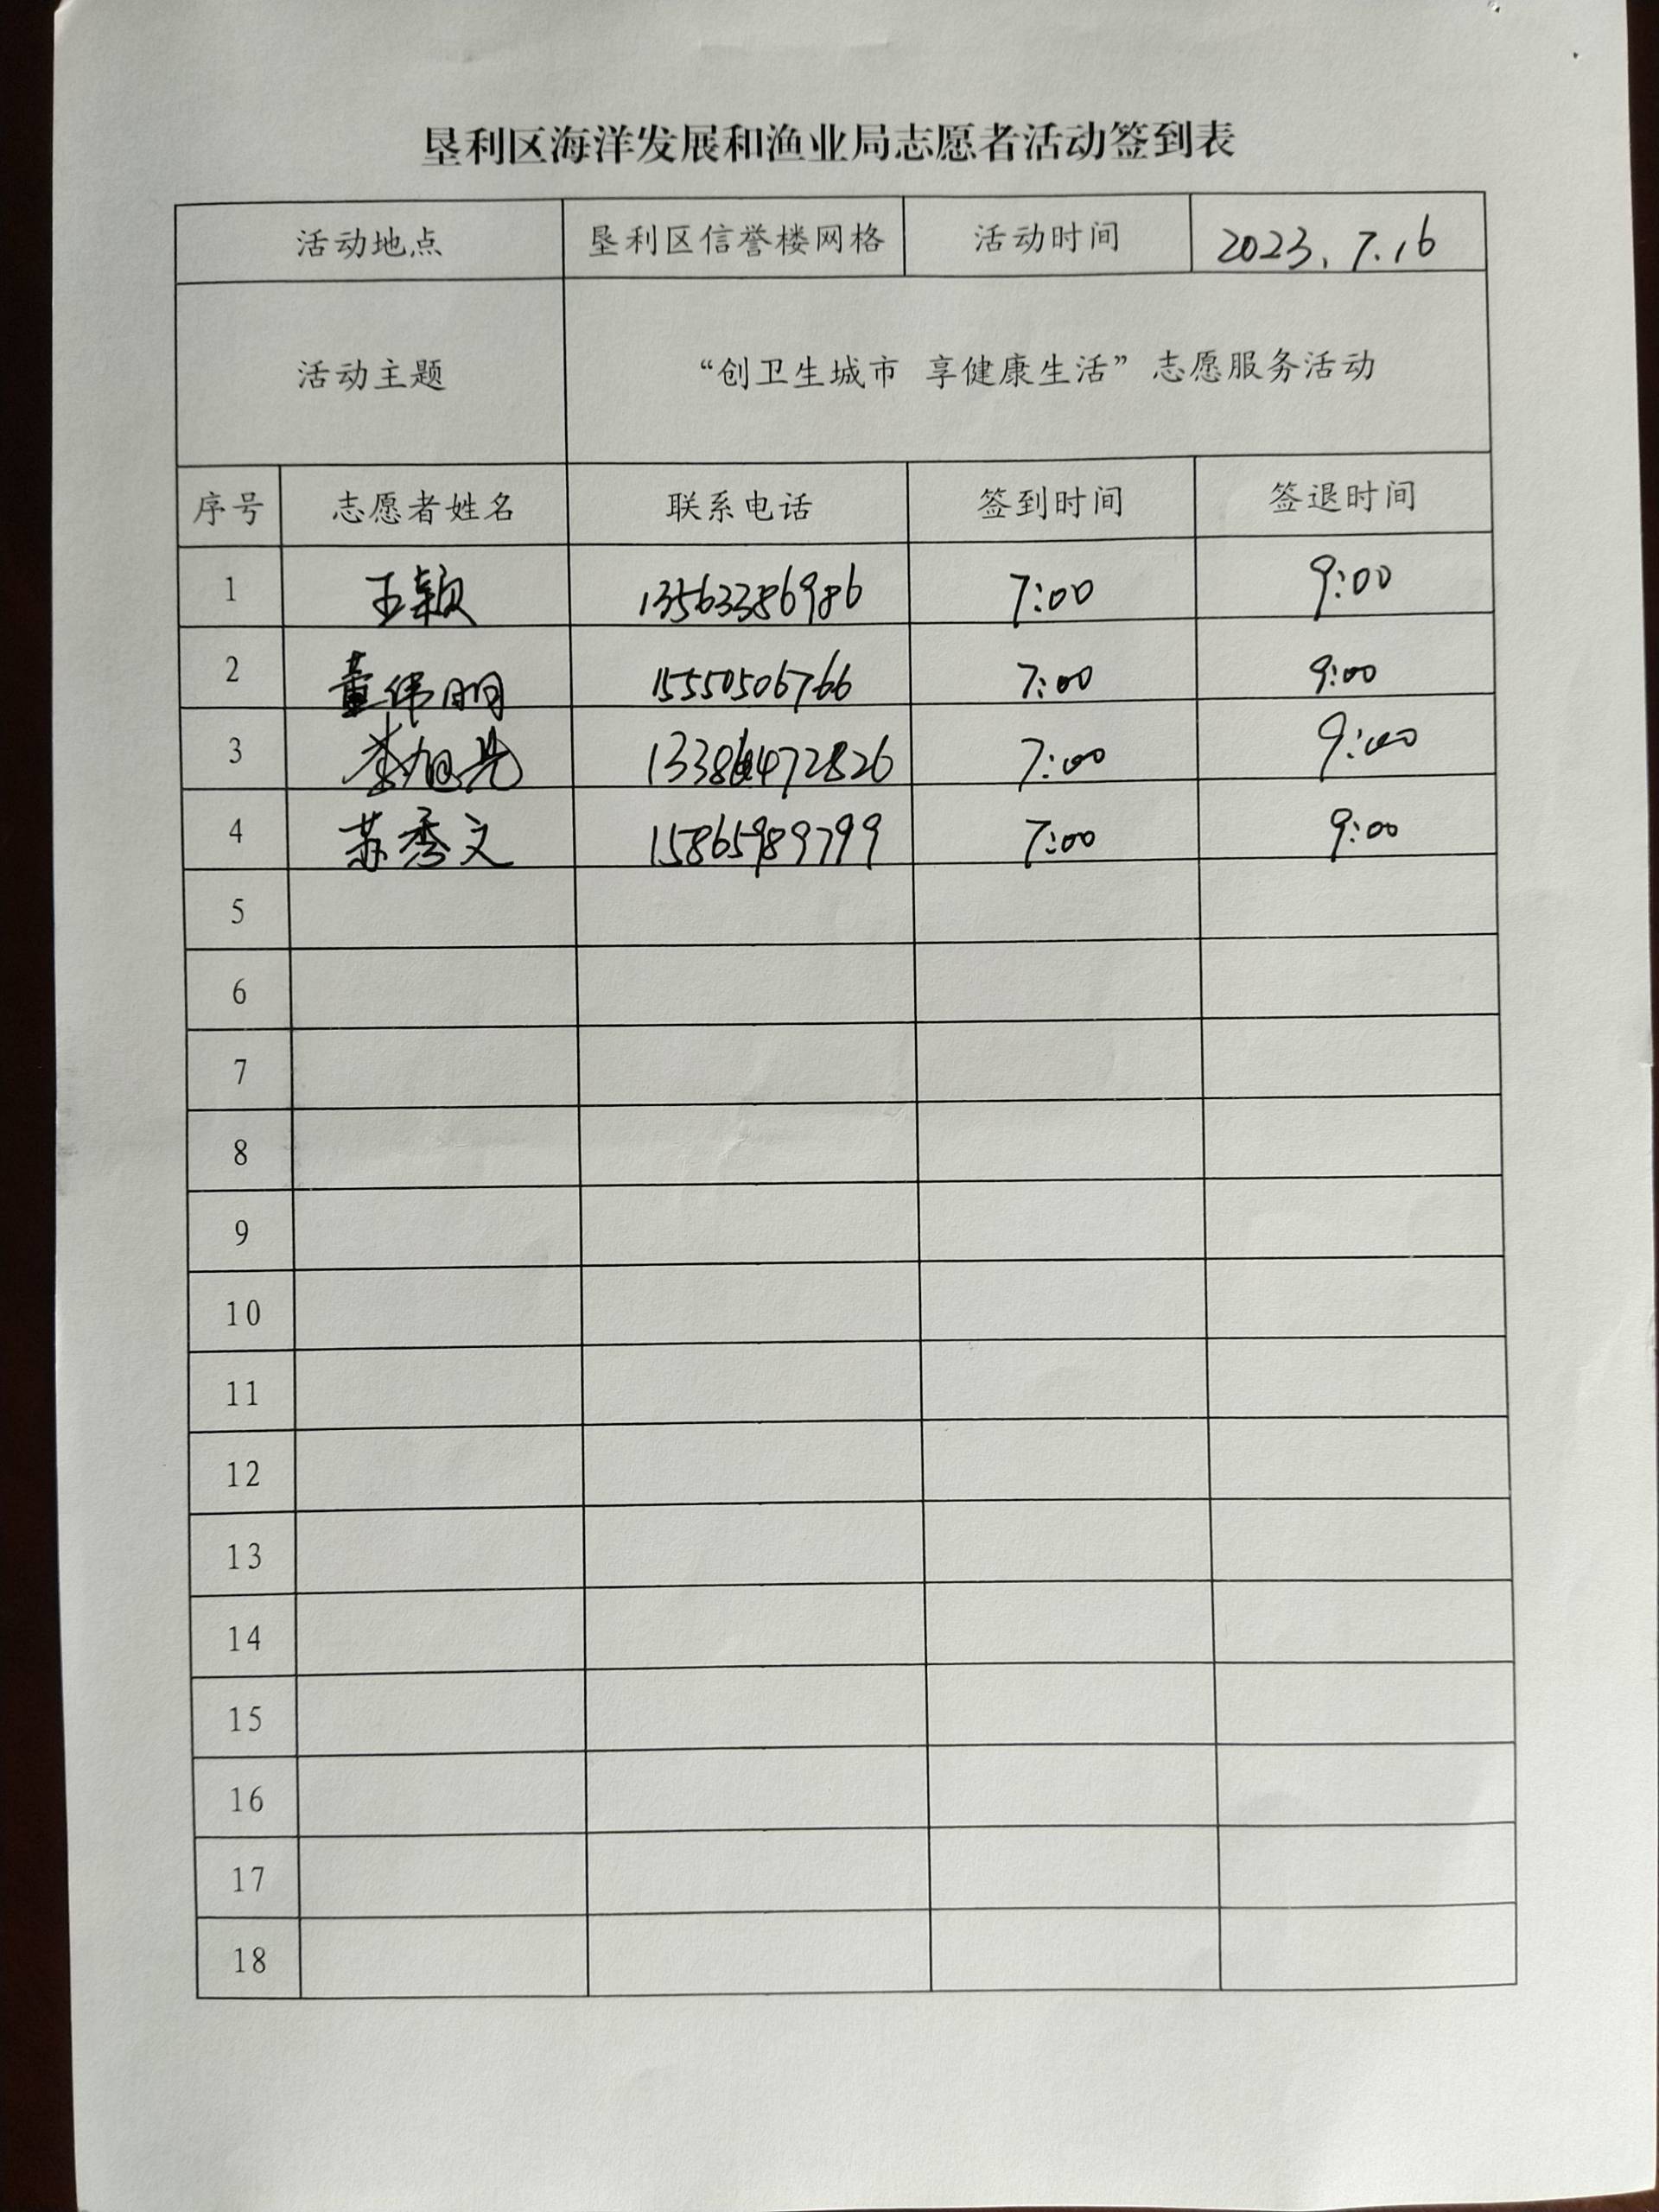 垦利区海洋发展和渔业局志愿者活动签到表
活动地点 垦利区信誉楼网格 活动时间 2023.7.16
活动主题 “创卫生城市 享健康生活”志愿服务活动
序号 志愿者姓名 联系电话 签到时间 签退时间
1 王颖 13563386986 7:00 9:00
2 董伟明 15550506766 7:00 9:00
3 李旭光 7:00 9:00
4 苏秀文 15865989799 7:00 9:00
5
6
7
8
9
10
11
12
13
14
15
16
17
18